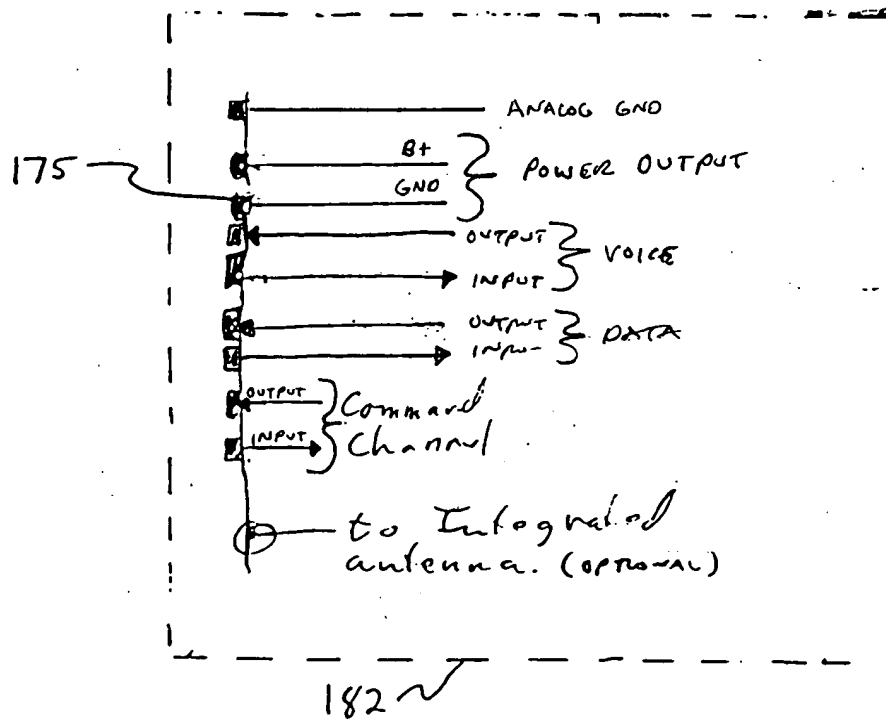 ANALOG GND
B+
GND
POWER OUTPUT
175
OUTPUT
INPUT
VOICE
OUTPUT
INPU-
DATA
OUTPUT
INPUT
Command
Channel
to Integrated
antenna. (OPTIONAL)
182